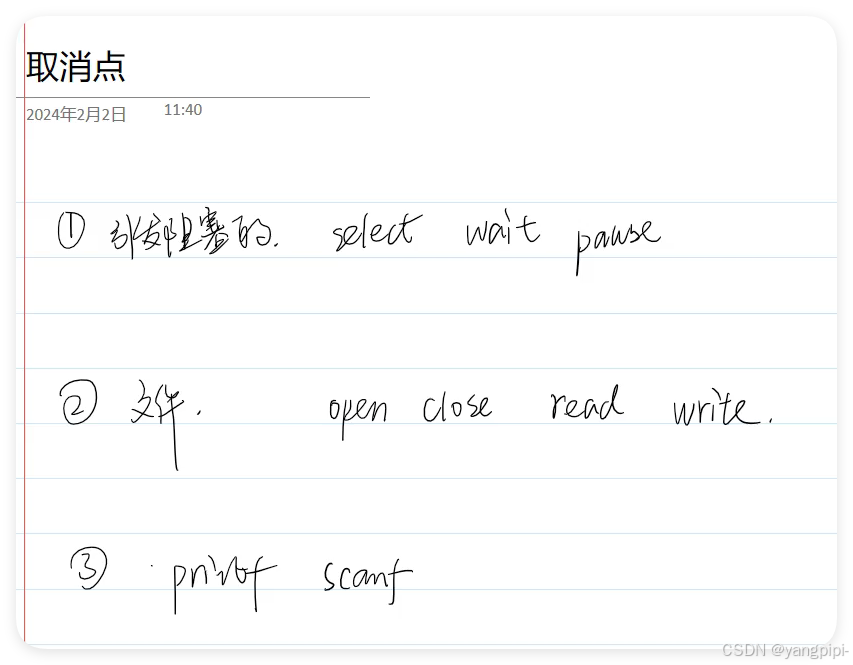 取消点
2024年2月2日 11:40
① 引发阻塞的. select wait pause
② 文件. open close read write.
③ printf scanf
CSDN @yangpipi-